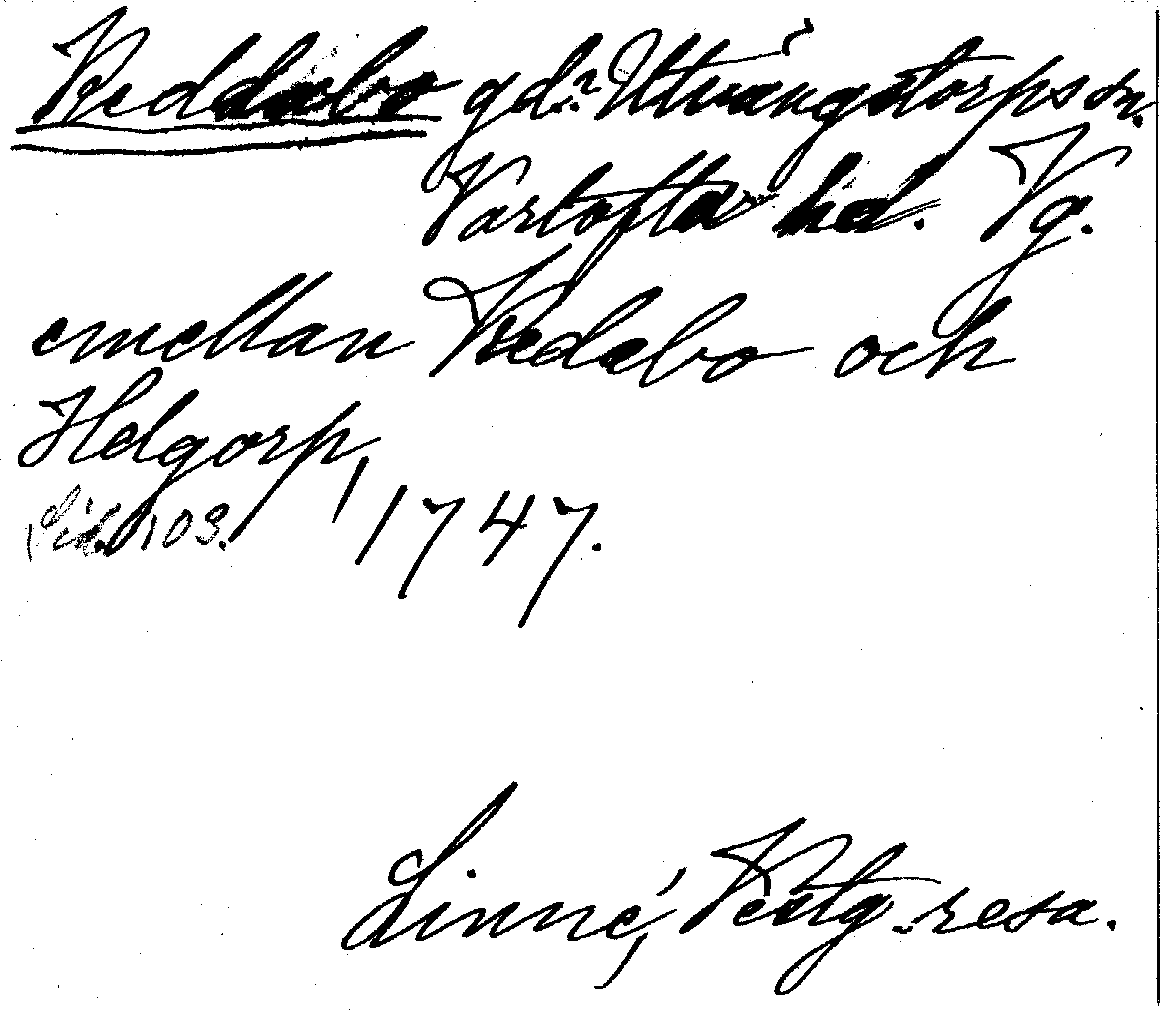 Veddebo gd:r Utvängstorps sn.
Vartofta hd. Vg.
emellan Vedebo och
Helgorp,
Sid. 103. 1747.
Linné, Vestg. resa.